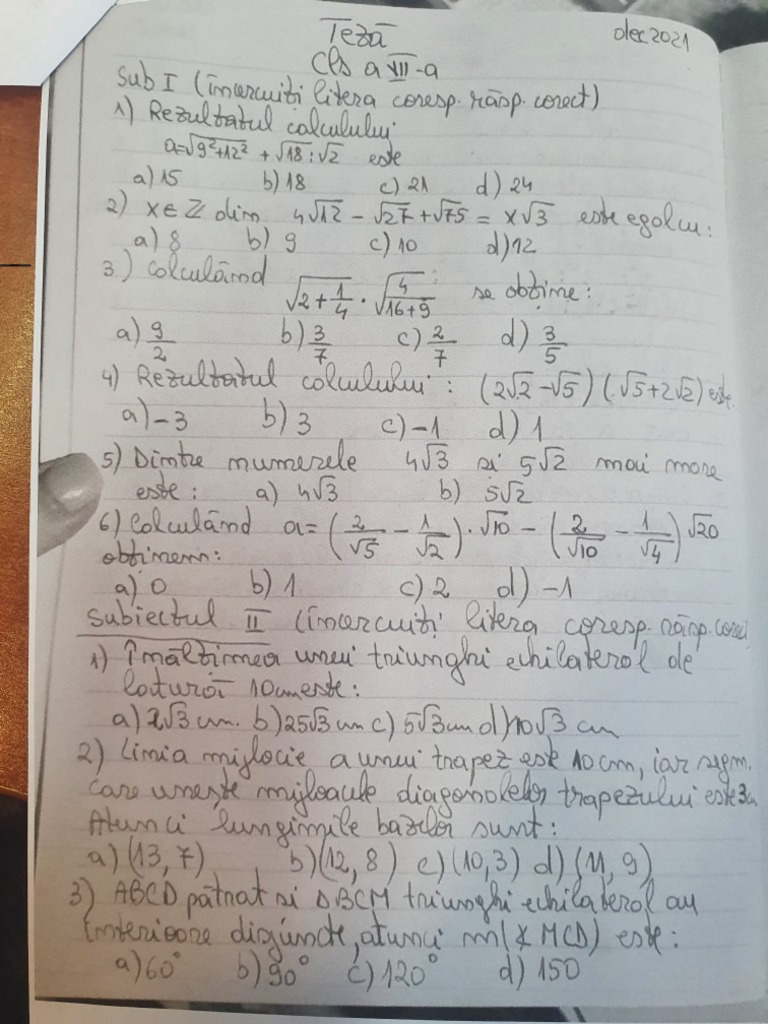 Teză
dec 2021
Cls a VII-a
Sub I (încercuiți litera coresp. răsp. corect)
1) Rezultatul calculului
a=√(9²+12²) + √18 : √2 este
a) 15 b) 18 c) 21 d) 24
2) x∈ℤ din 4√12 - √27 + √75 = x√3 este egal cu:
a) 8 b) 9 c) 10 d) 12
3) Calculând √(2+1/4) · √(4/(16+9)) se obține:
a) 9/2 b) 3/7 c) 2/7 d) 3/5
4) Rezultatul calculului: (2√2 - √5)(√5+2√2) este
a) -3 b) 3 c) -1 d) 1
5) Dintre numerele 4√3 și 5√2 mai mare
este: a) 4√3 b) 5√2
6) Calculând a = (2/√5 - 1/√2) · √10 - (2/√10 - 1/√4) √20
obținem:
a) 0 b) 1 c) 2 d) -1
Subiectul II (încercuiți litera coresp. răsp. corec
1) Înălțimea unui triunghi echilateral de
latură 10 cm este:
a) 2√3 cm. b) 25√3 cm c) 5√3 cm d) 10√3 cm
2) Linia mijlocie a unui trapez este 10 cm, iar segm.
care unește mijloacele diagonalelor trapezului este 3cm
Atunci lungimile bazelor sunt:
a) (13, 7) b) (12, 8) c) (10, 3) d) (11, 9)
3) ABCD pătrat și ΔBCM triunghi echilateral au
interioare disjuncte, atunci m(∢ MCD) este:
a) 60° b) 90° c) 120° d) 150